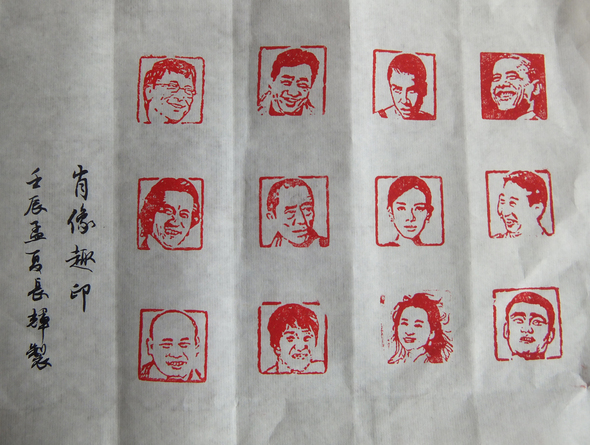 肖像趣印
壬辰孟夏長輝製